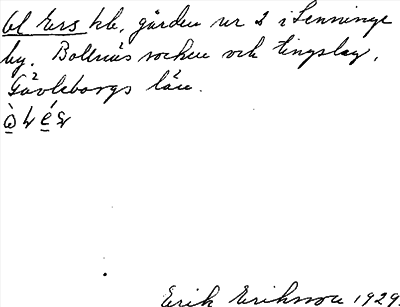 Ol Ers kb, gården nr 2 i Senninge
by. Bollnäs socken och tingslag,
Gävleborgs län.
Erik Eriksson 1929.